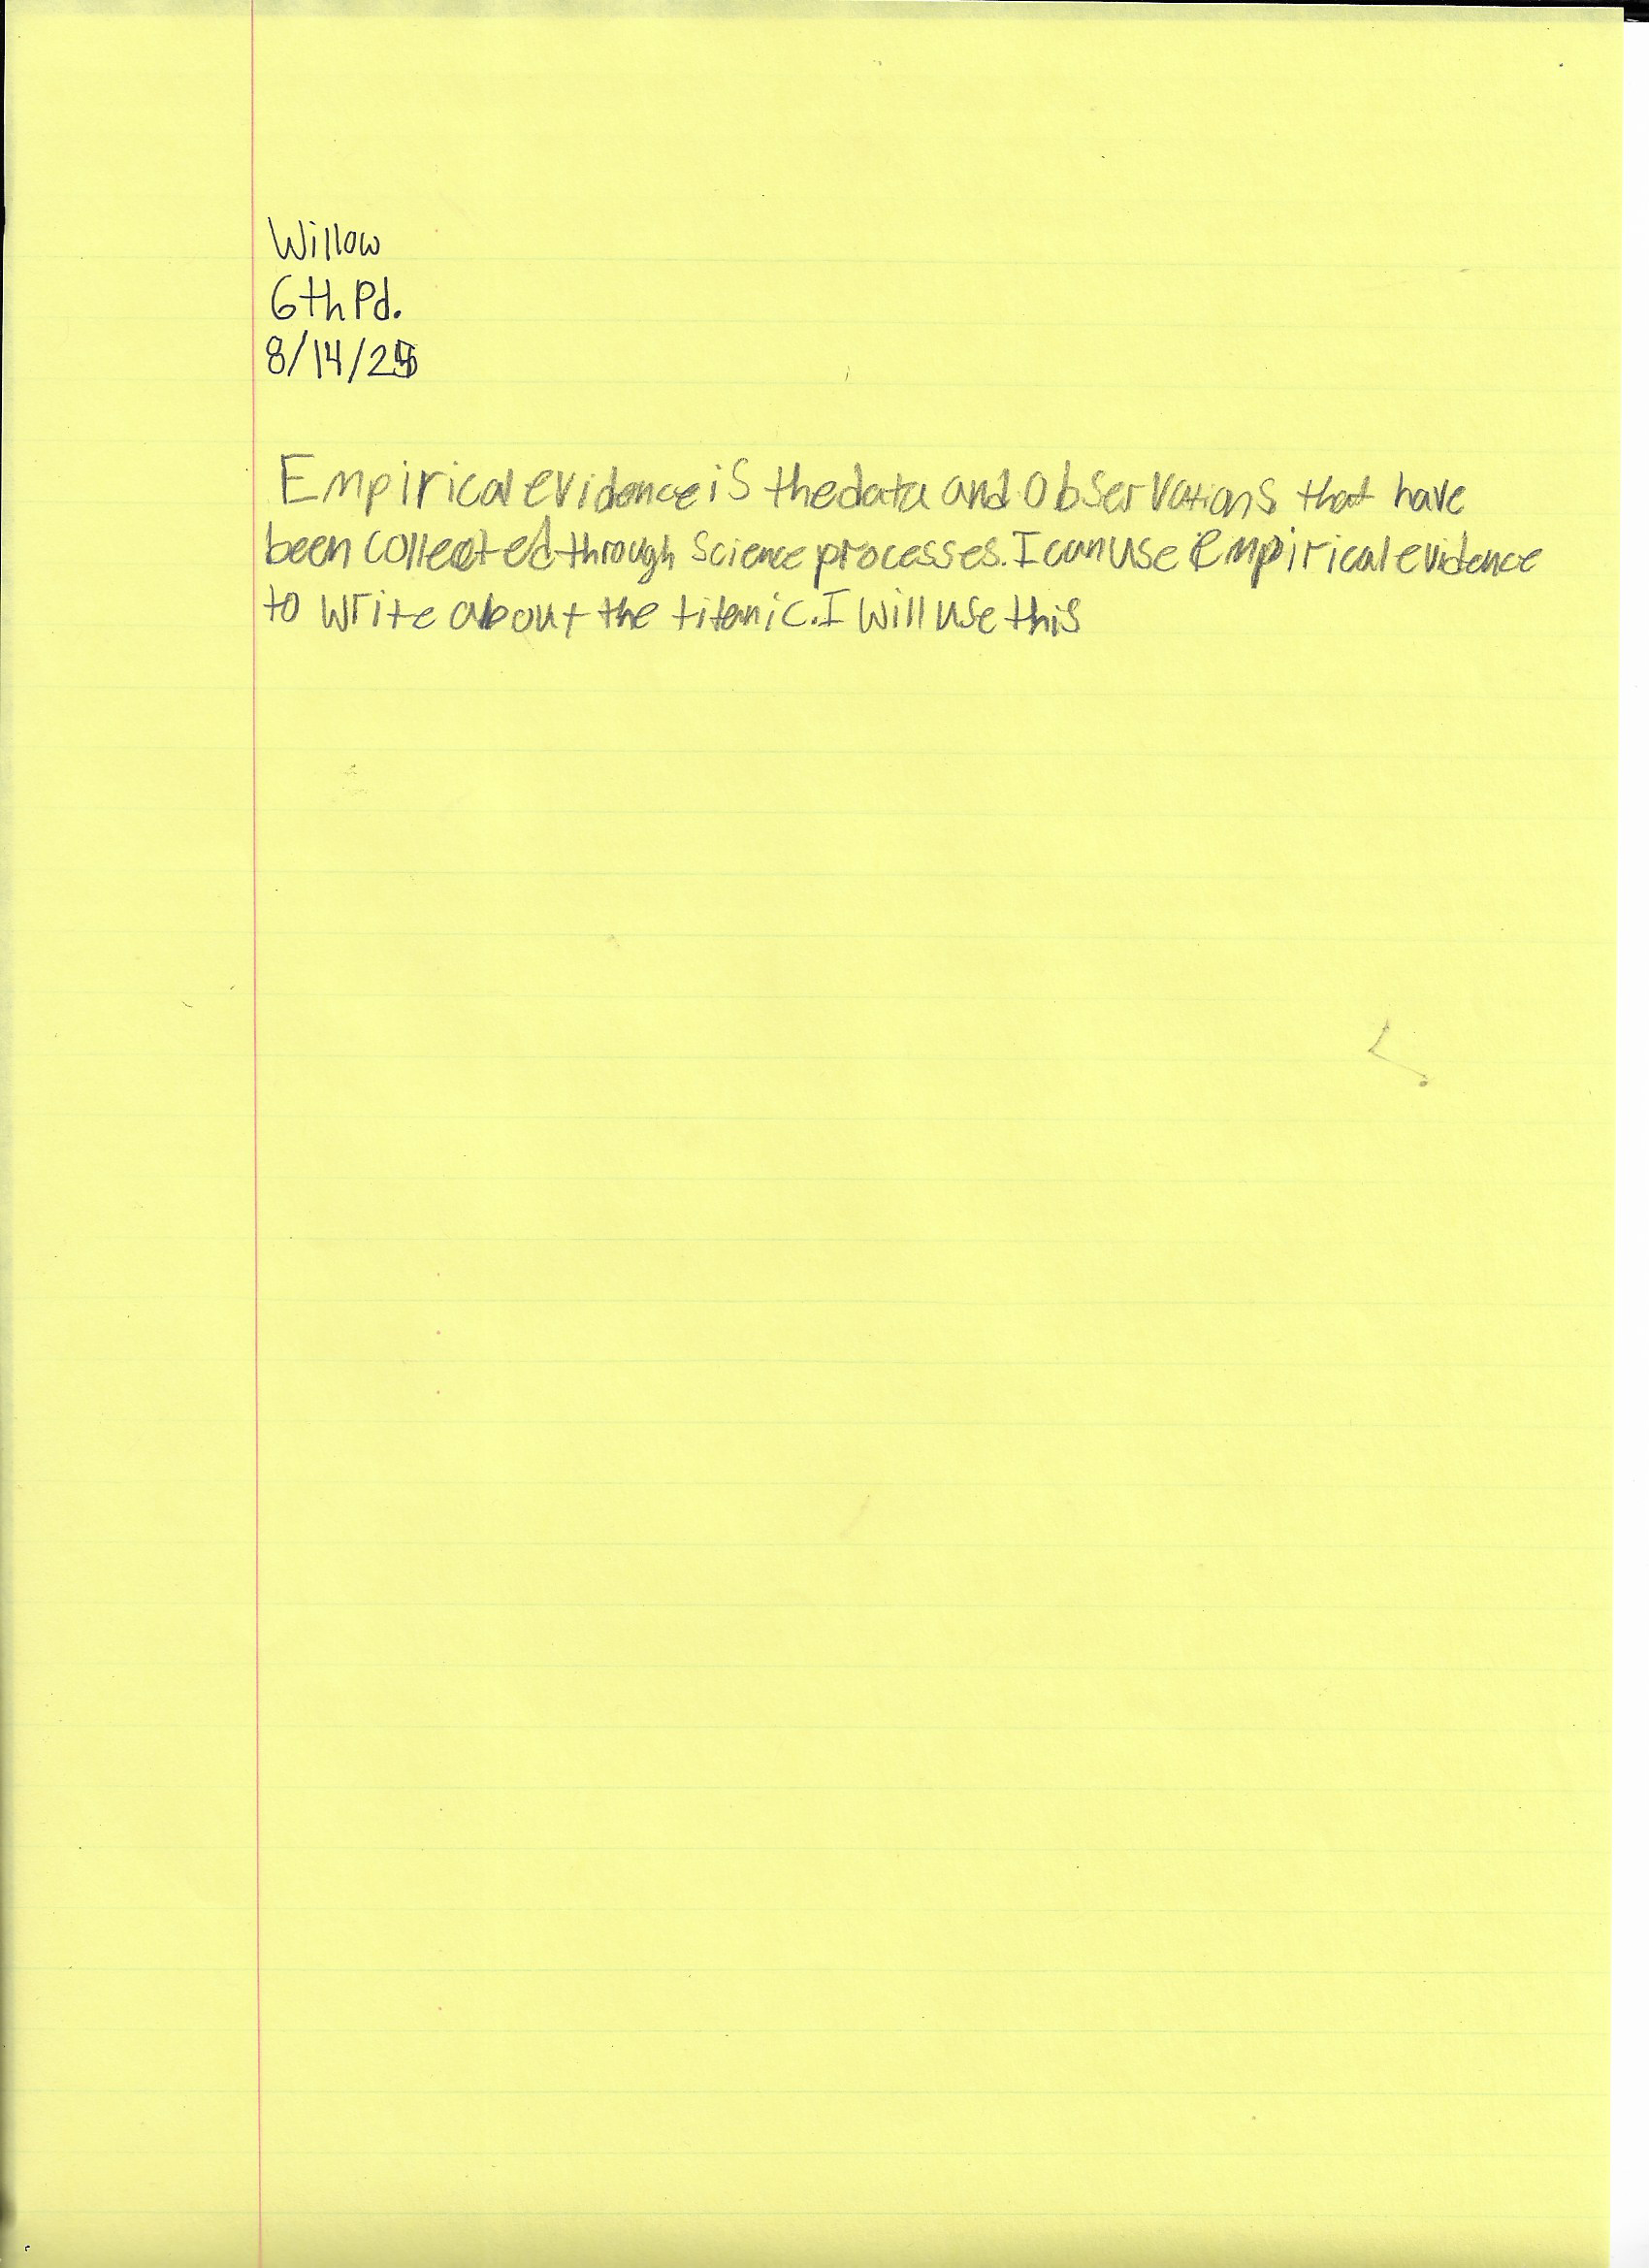 Willow
6th Pd.
8/14/25
Empirical evidence is the data and observations that have
been collected through science processes. I can use empirical evidence
to write about the titanic. I will use this